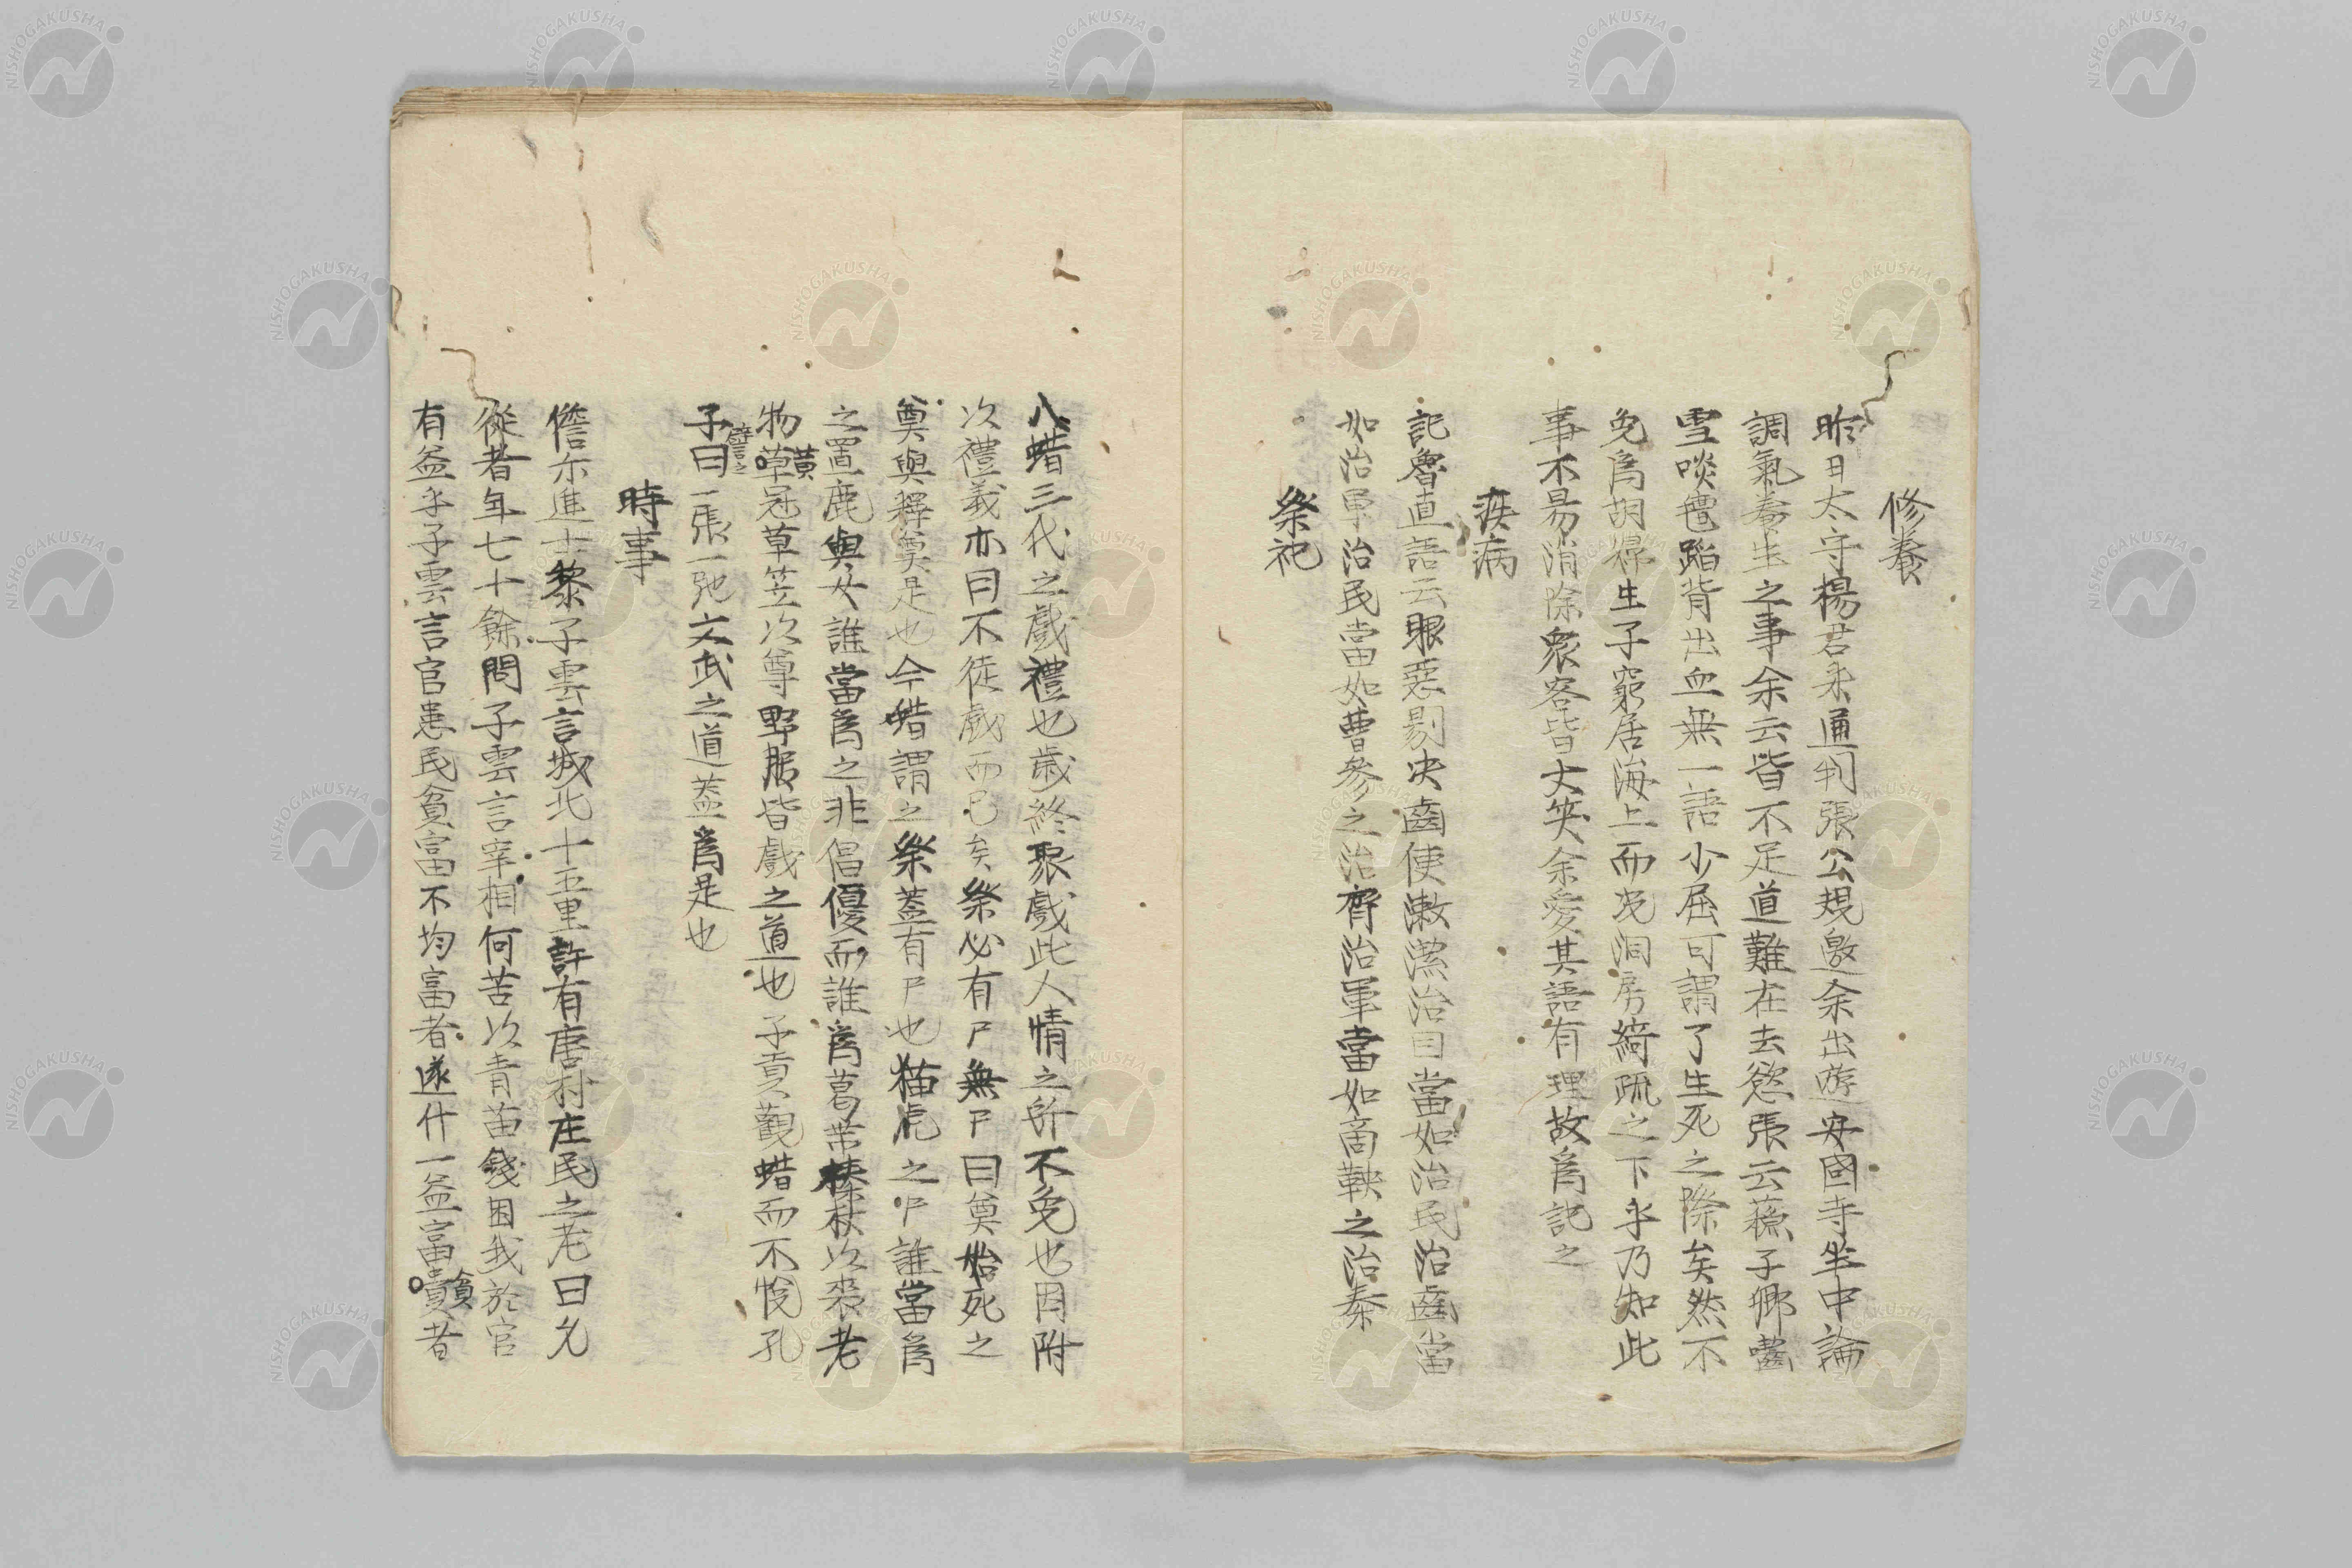 修養
昨日太守楊君采通判張公規邀余出遊安國寺坐中論
調氣養生之事余云皆不足道難在去慾張云蘓子卿嚙
雪啖氊蹈背出血無一語少屈可謂了生死之際矣然不
免爲胡婦生子窮居海上而况洞房綺疏之下乎乃知此
事不易消除衆客皆大笑余愛其語有理故爲記之
疾病
記魯直語云眼惡剔决齒便漱潔治目當如治民治齒當
如治軍治民當如曹參之治齊治軍當如商鞅之治秦
祭祀
八蜡三代之戲禮也歲終聚戲此人情之所不免也因附
以禮義亦曰不徒戲而已矣祭必有尸無尸曰奠始死之
奠與釋奠是也今蜡謂之祭蓋有尸也猫虎之尸誰當爲
之置鹿與女誰當爲之非倡優而誰爲葛帶榛杖以喪老
物草黄冠草笠以尊野服皆戲之道也子貢觀蜡而不恱孔
子譬之曰一張一弛文武之道蓋爲是也
時事
儋尒進士黎子雲言城北十五里許有唐村庄民之老曰允
從者年七十餘問子雲言宰相何苦以青苗錢困我於官
有益乎子雲言官患民貧富不均富者逐什一益富賣貧者
NISHOGAKUSHA